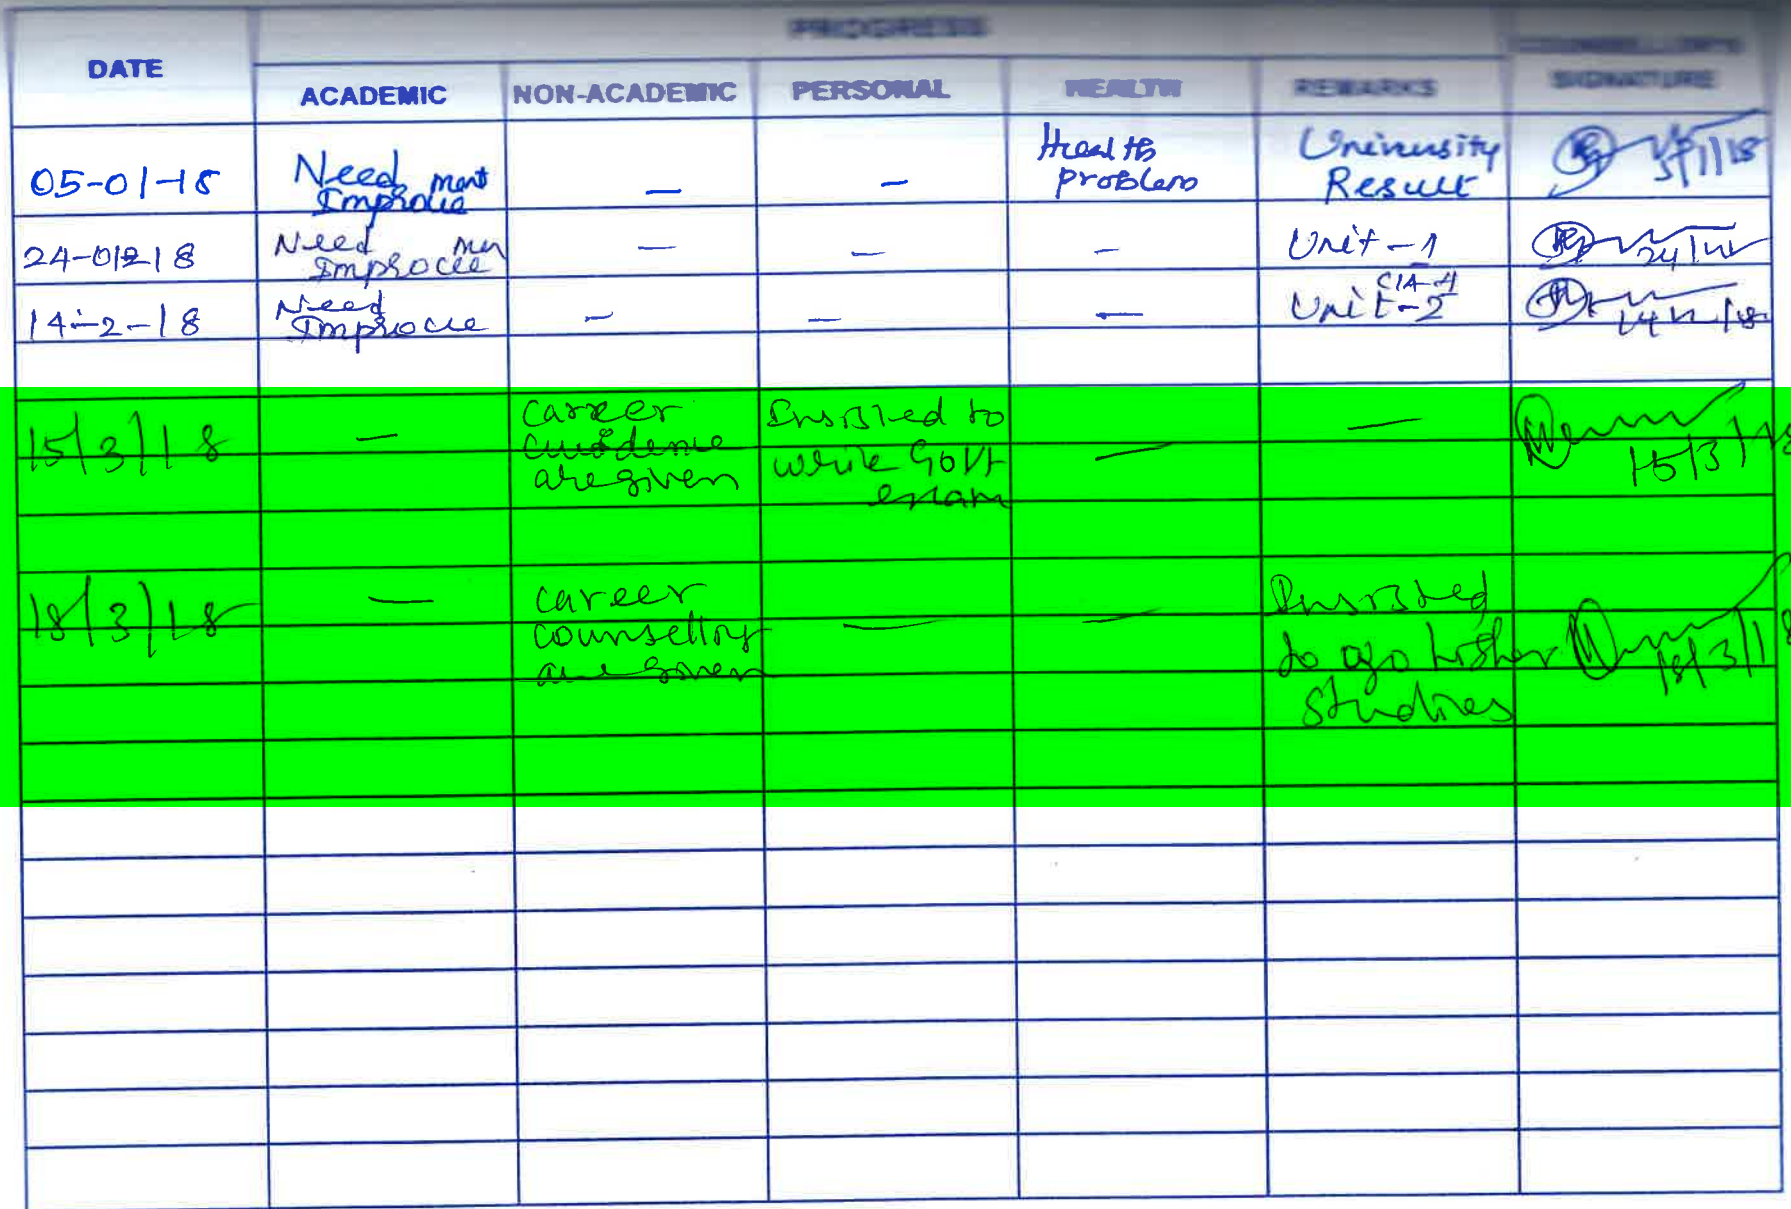 PROGRESS
DATE ACADEMIC NON-ACADEMIC PERSONAL HEALTH REMARKS COUNSELLOR'S SIGNATURE
05-01-18 Need Improvement — — Health problem University Result 5/1/18
Need Improve — — — Unit-1
14-2-18 Need Improve — — — Unit-2
15/3/18 — career are given Insisted to write Govt exam — — 15/3/18
18/3/18 — career counselling are given — — Insisted to go higher studies 18/3/18